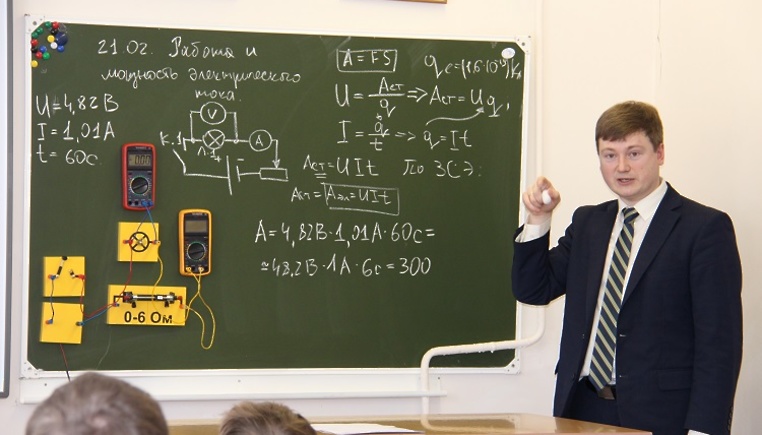 21.02. Работа и
мощность электрического
тока.
U = 4,82 В
I = 1,01 А
t = 60 с.
V
A
К.1
Л.1
A = FS
U = Aст/q => Aст = Uq,
I = q/t => q = It
Aст = UIt По ЗСЭ:
Aст = Aэл = UIt
A = 4,82 В · 1,01 А · 60 с =
≈ 48,2 В · 1 А · 6 с = 300
0-6 Ом